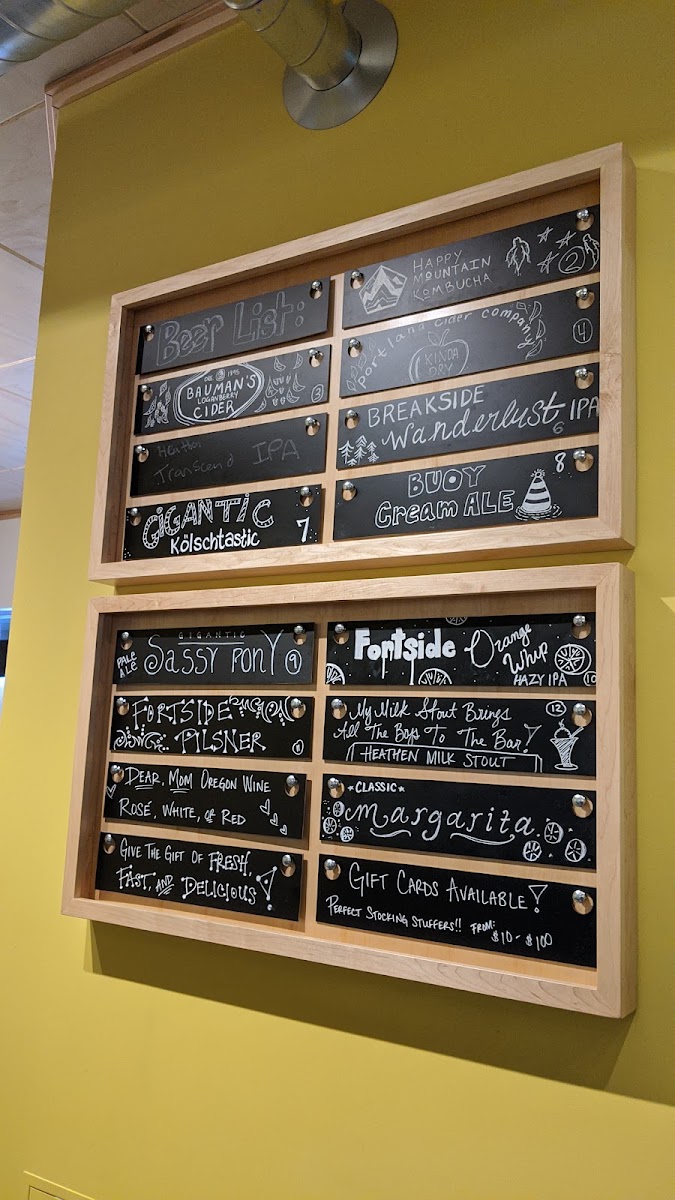 Beer List:
EST. 1895
BAUMAN'S
LOGANBERRY
CIDER
3
Heathen
Transcend IPA
GIGANTIC
Kölschtastic
7
HAPPY
MOUNTAIN
KOMBUCHA
2
Portland Cider Company
KINDA
DRY
4
BREAKSIDE
Wanderlust IPA
6
BUOY
Cream ALE
8
GIGANTIC
PALE
ALE
SASSY PONY
9
FORTSIDE
PILSNER
DEAR, MOM OREGON WINE
ROSÉ, WHITE, OR RED
GIVE THE GIFT OF FRESH,
FAST, AND DELICIOUS!
Fortside Orange
Whip
HAZY IPA
10
My Milk Stout Brings
All The Boys To The Bar!
12
HEATHEN MILK STOUT
*CLASSIC*
margarita
GIFT CARDS AVAILABLE!
PERFECT STOCKING STUFFERS!! FROM:
$10-$100